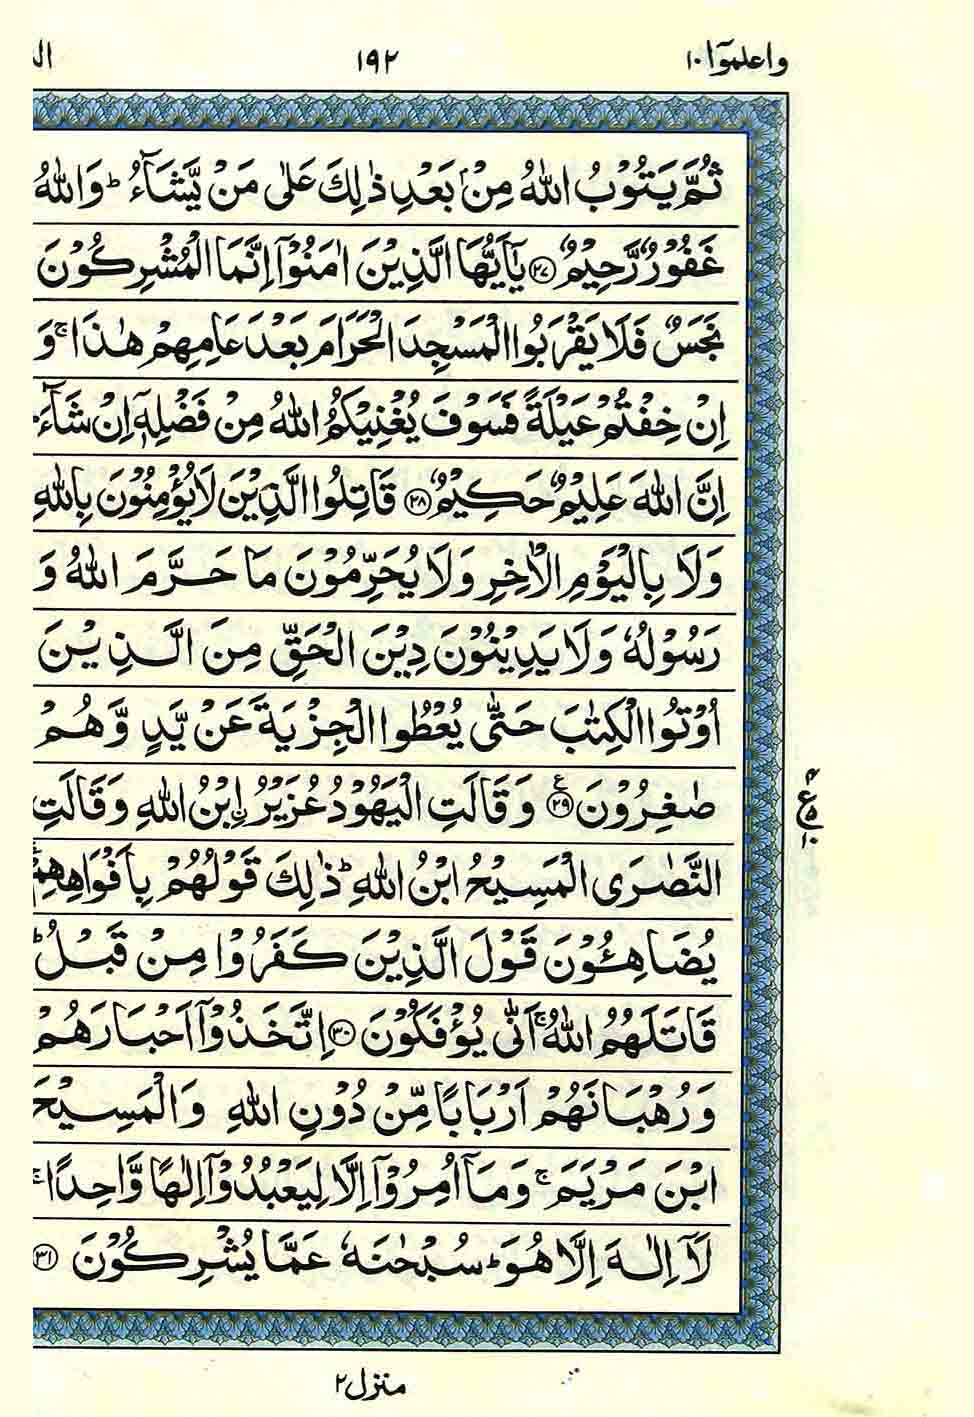 واعلموٓا ١٠ ١٩٢
ثُمَّ يَتُوْبُ اللّٰهُ مِنْۢ بَعْدِ ذٰلِكَ عَلٰى مَنْ يَّشَآءُ ؕ وَاللّٰهُ
غَفُوْرٌ رَّحِيْمٌ ﴿٢٧﴾ يٰۤاَيُّهَا الَّذِيْنَ اٰمَنُوْۤا اِنَّمَا الْمُشْرِكُوْنَ
نَجَسٌ فَلَا يَقْرَبُوا الْمَسْجِدَ الْحَرَامَ بَعْدَ عَامِهِمْ هٰذَا ۚ وَ
اِنْ خِفْتُمْ عَيْلَةً فَسَوْفَ يُغْنِيْكُمُ اللّٰهُ مِنْ فَضْلِهٖۤ اِنْ شَآءَ ؕ
اِنَّ اللّٰهَ عَلِيْمٌ حَكِيْمٌ ﴿٢٨﴾ قَاتِلُوا الَّذِيْنَ لَا يُؤْمِنُوْنَ بِاللّٰهِ
وَلَا بِالْيَوْمِ الْاٰخِرِ وَلَا يُحَرِّمُوْنَ مَا حَرَّمَ اللّٰهُ وَ
رَسُوْلُهٗ وَلَا يَدِيْنُوْنَ دِيْنَ الْحَقِّ مِنَ الَّذِيْنَ
اُوْتُوا الْكِتٰبَ حَتّٰى يُعْطُوا الْجِزْيَةَ عَنْ يَّدٍ وَّهُمْ
صٰغِرُوْنَ ﴿٢٩﴾ ع وَقَالَتِ الْيَهُوْدُ عُزَيْرُ ۨ ابْنُ اللّٰهِ وَقَالَتِ
النَّصٰرَى الْمَسِيْحُ ابْنُ اللّٰهِ ؕ ذٰلِكَ قَوْلُهُمْ بِاَفْوَاهِهِمْ ۚ
يُضَاهِـُٔوْنَ قَوْلَ الَّذِيْنَ كَفَرُوْا مِنْ قَبْلُ ؕ
قَاتَلَهُمُ اللّٰهُ ۚ اَنّٰى يُؤْفَكُوْنَ ﴿٣٠﴾ اِتَّخَذُوْۤا اَحْبَارَهُمْ
وَرُهْبَانَهُمْ اَرْبَابًا مِّنْ دُوْنِ اللّٰهِ وَالْمَسِيْحَ
ابْنَ مَرْيَمَ ۚ وَمَاۤ اُمِرُوْۤا اِلَّا لِيَعْبُدُوْۤا اِلٰهًا وَّاحِدًا ۚ
لَاۤ اِلٰهَ اِلَّا هُوَ ؕ سُبْحٰنَهٗ عَمَّا يُشْرِكُوْنَ ﴿٣١﴾
منزل ٢